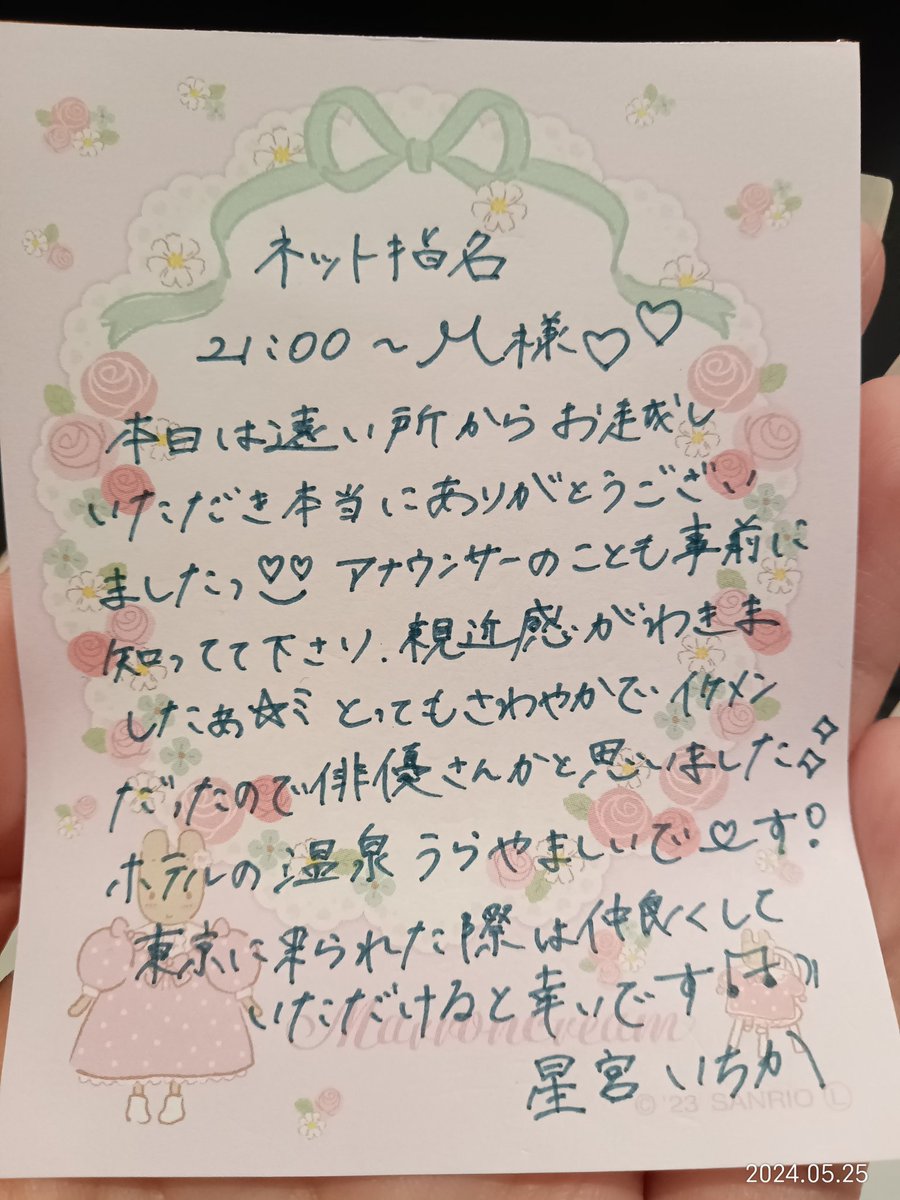 ネット指名
21:00～M様♡♡
本日は遠い所からお越し
いただき本当にありがとうござい
ましたっ♡♡ アナウンサーのことも事前に
知ってて下さり、親近感がわきま
したぁ☆ミ とってもさわやかで イケメン
だったので俳優さんかと思いました✧✧
ホテルの温泉 うらやましいです!
東京に来られた際は仲良くして
いただけると幸いです♫
Marroncream
星宮いちか
© '23 SANRIO Ⓛ
2024.05.25